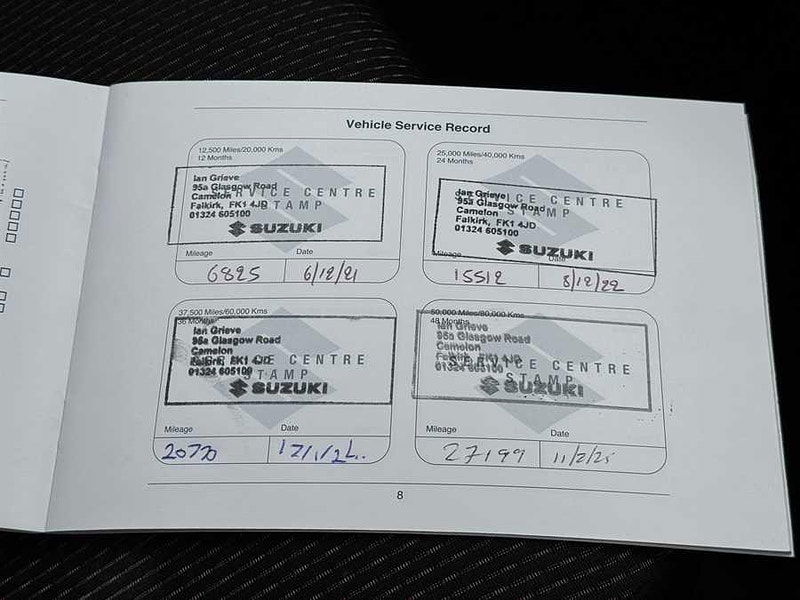 Vehicle Service Record
12,500 Miles/20,000 Kms
12 Months
Ian Grieve
95a Glasgow Road
Camelon
Falkirk, FK1 4JD
01324 605100
SERVICE CENTRE
STAMP
SUZUKI
Mileage Date
6825 6/12/21
25,000 Miles/40,000 Kms
24 Months
Ian Grieve
95a Glasgow Road
Camelon
Falkirk, FK1 4JD
01324 605100
SERVICE CENTRE
STAMP
SUZUKI
Mileage Date
15512 8/12/22
37,500 Miles/60,000 Kms
36 Months
Ian Grieve
95a Glasgow Road
Camelon
Falkirk, FK1 4JD
01324 605100
SERVICE CENTRE
STAMP
SUZUKI
Mileage Date
20770 17/1/24.
50,000 Miles/80,000 Kms
48 Months
Ian Grieve
95a Glasgow Road
Camelon
Falkirk, FK1 4JD
01324 605100
SERVICE CENTRE
STAMP
SUZUKI
Mileage Date
27199 11/2/25
8